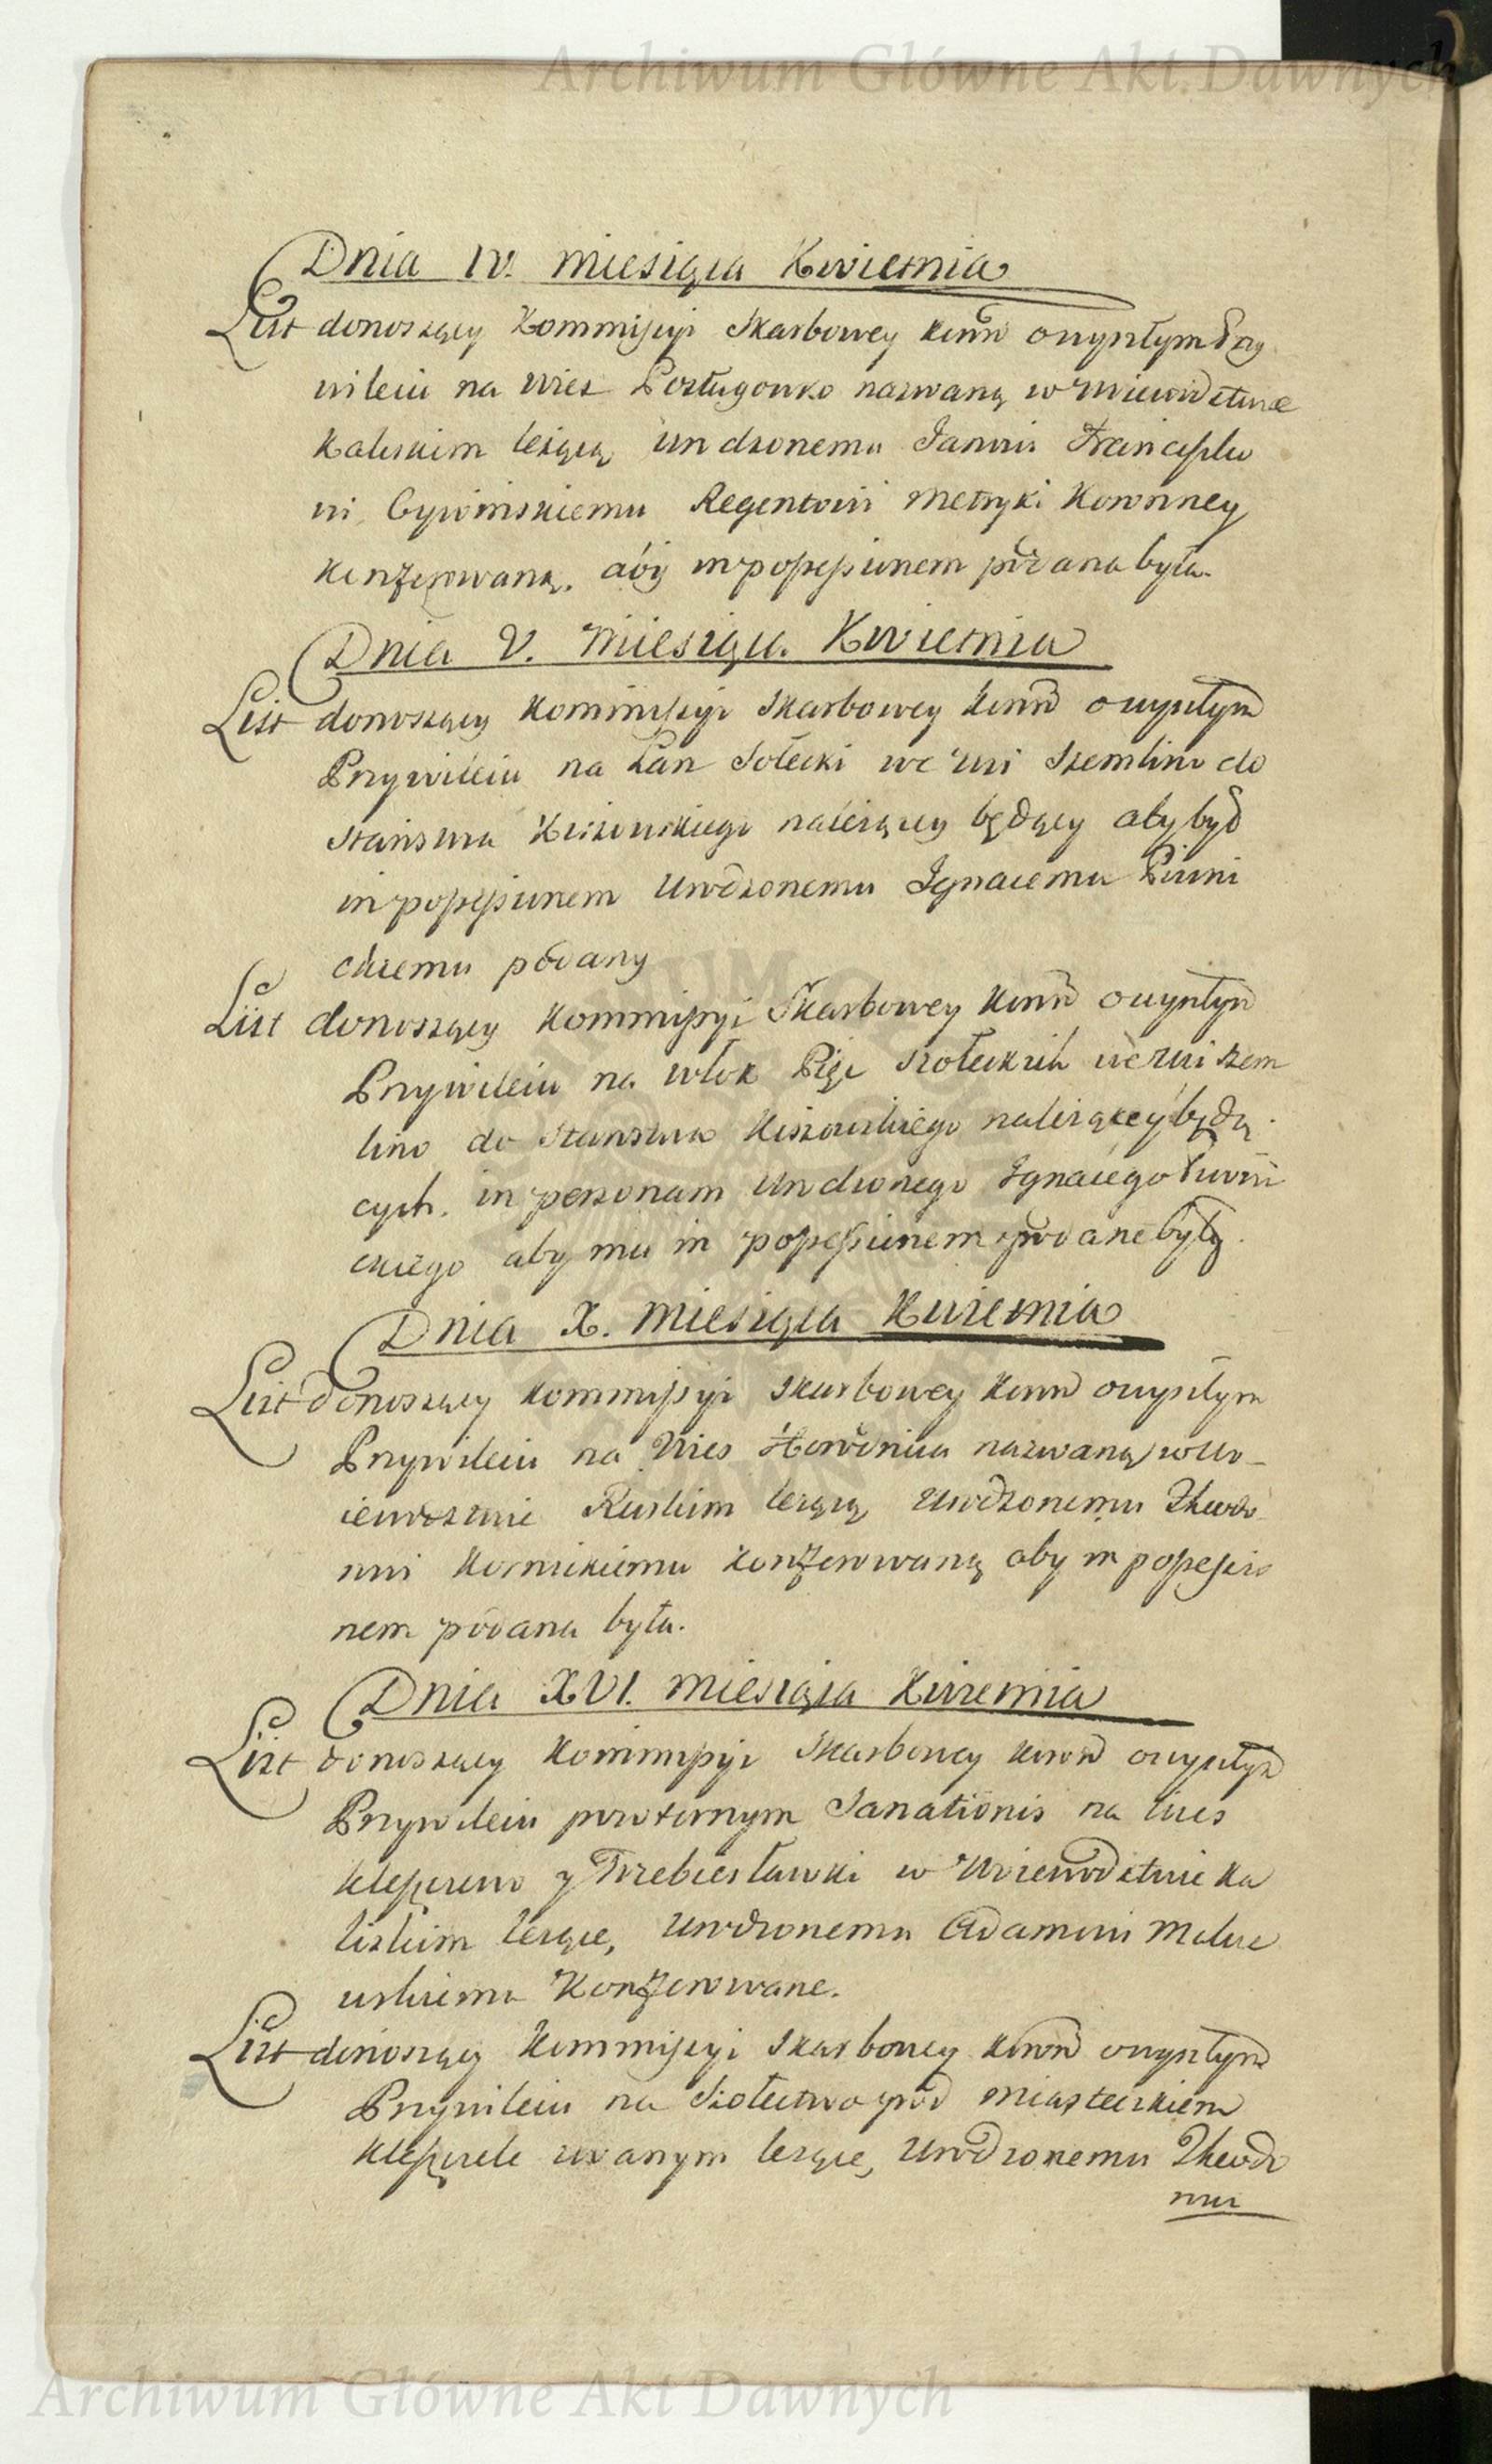 Archiwum Główne Akt Dawnych
Dnia IV. miesiąca Kwietnia
List donoszący Kommissyi Skarbowey Konñ o wyszłym Przy
wileiu na Wieś nazwaną w Wiewodztwie
Kaliskim leżącą Urodzonemu Janowi Franciszko
wi Cywińskiemu Regentowi Metryki Koronney
konferowaną, aby in possessionem podana była.
Dnia V. Miesiąca Kwietnia
List donoszący Kommissyi Skarbowey Konñ o wyszłym
Przywileiu na Łan Sołecki we wsi Szemlino do
Starostwa Kiszewskiego należący będący aby był
in possessionem Urodzonemu Ignacemu Piwni
ckiemu podany
List donoszący Kommissyi Skarbowey Konñ o wyszłym
Przywileiu na włok Pięć szołeckich we wsi Szem
lino do Starostwa Kiszewskiego należącey będą
cych. in personam Urodzonego Ignacego Piwni
ckiego aby mu in possessionem podane były.
Dnia X. Miesiąca Kwietnia
List donoszący Kommissyi Skarbowey Konñ o wyszłym
Przywileiu na Wieś nazwaną w Wo-
iewodztwie Ruskim leżącą Urodzonemu Theodo
rowi konferowaną aby in possessio
nem podana była.
Dnia XVI. miesiąca Kwietnia
List donoszący Kommissyi Skarbowey Konñ o wyszłym
Przywileiu powtornym Sanationis na wieś
Kleszczewo y Trzebiesławki w Woiewodztwie Ka
liskim leżące, Urodzonemu Adamowi
Konferowane.
List donoszący Kommissyi Skarbowey Konñ o wyszłym
Przywileiu na Szołectwo pod Miasteczkiem
zwanym leżące, Urodzonemu Theodo
rowi
Archiwum Główne Akt Dawnych